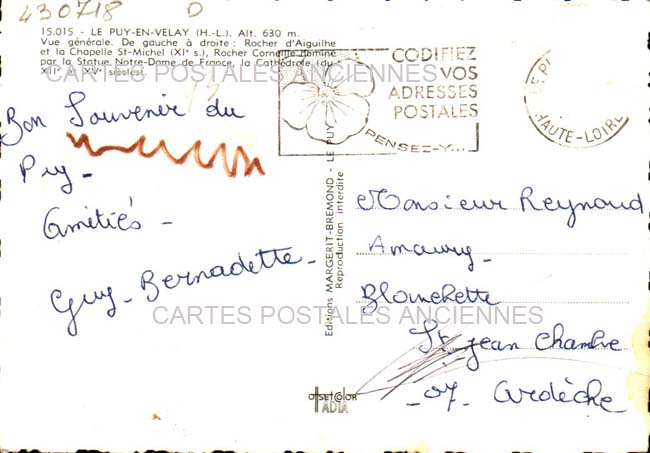 430718 D
15.015 - LE PUY-EN-VELAY (H.-L.). Alt. 630 m.
Vue générale. De gauche à droite : Rocher d'Aiguilhe
et la Chapelle St-Michel (XIe s.), Rocher Corneille dominé
par la Statue Notre-Dame de France, la Cathédrale (du
XIIe au XVe siècles).
CARTES POSTALES ANCIENNES
CODIFIEZ
VOS
ADRESSES
POSTALES
PENSEZ-Y...
LE PUY
HAUTE-LOIRE
Bon Souvenir du
Puy -
Amitiés -
Guy - Bernadette -
Editions MARGERIT-BREMOND - LE PUY
Reproduction interdite
Monsieur Reynaud
Amaury -
Blanchette
St Jean Chambre
- 07 - Ardèche
CARTES POSTALES ANCIENNES
OFFSET COLOR
IADIA